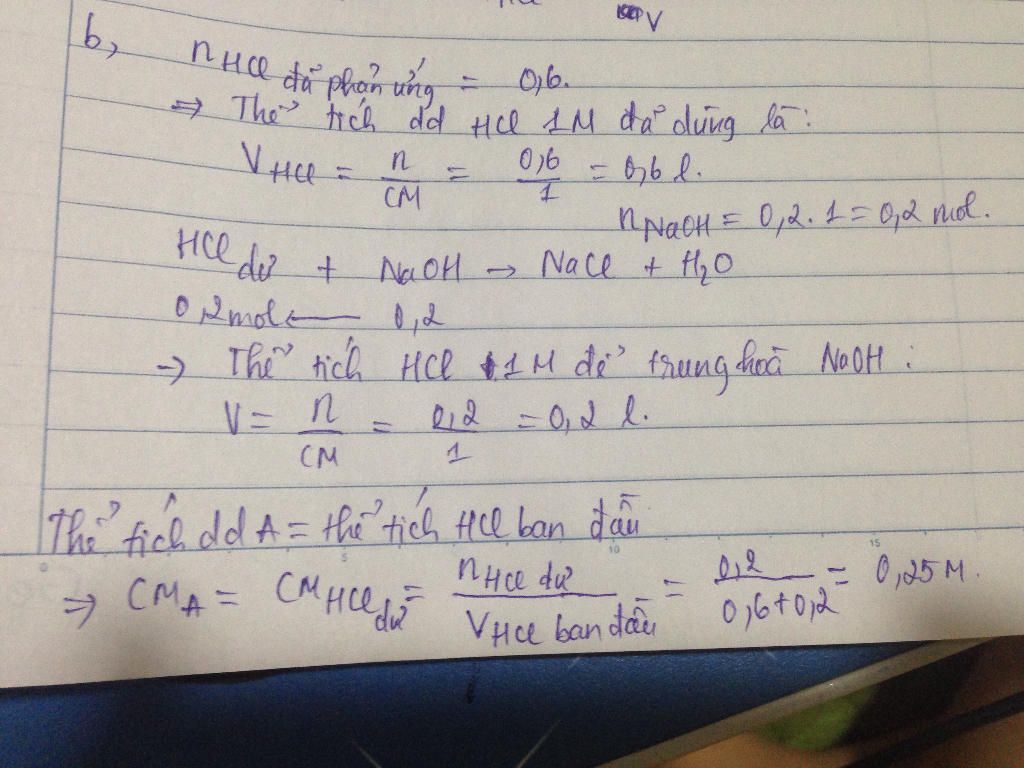 V
b,
nHCl đã phản ứng = 0,6.
⇒ Thể tích dd HCl 1M đã dùng là:
VHCl = n/CM = 0,6/1 = 0,6 l.
nNaOH = 0,2.1 = 0,2 mol.
HCl dư + NaOH → NaCl + H2O
0,2mol ← 0,2
→ Thể tích HCl 1M để trung hoà NaOH:
V = n/CM = 0,2/1 = 0,2 l.
Thể tích dd A = thể tích HCl ban đầu
⇒ CMA = CMHCl dư = nHCl dư/VHCl ban đầu = 0,2/0,6+0,2 = 0,25M.
0 5 10 15